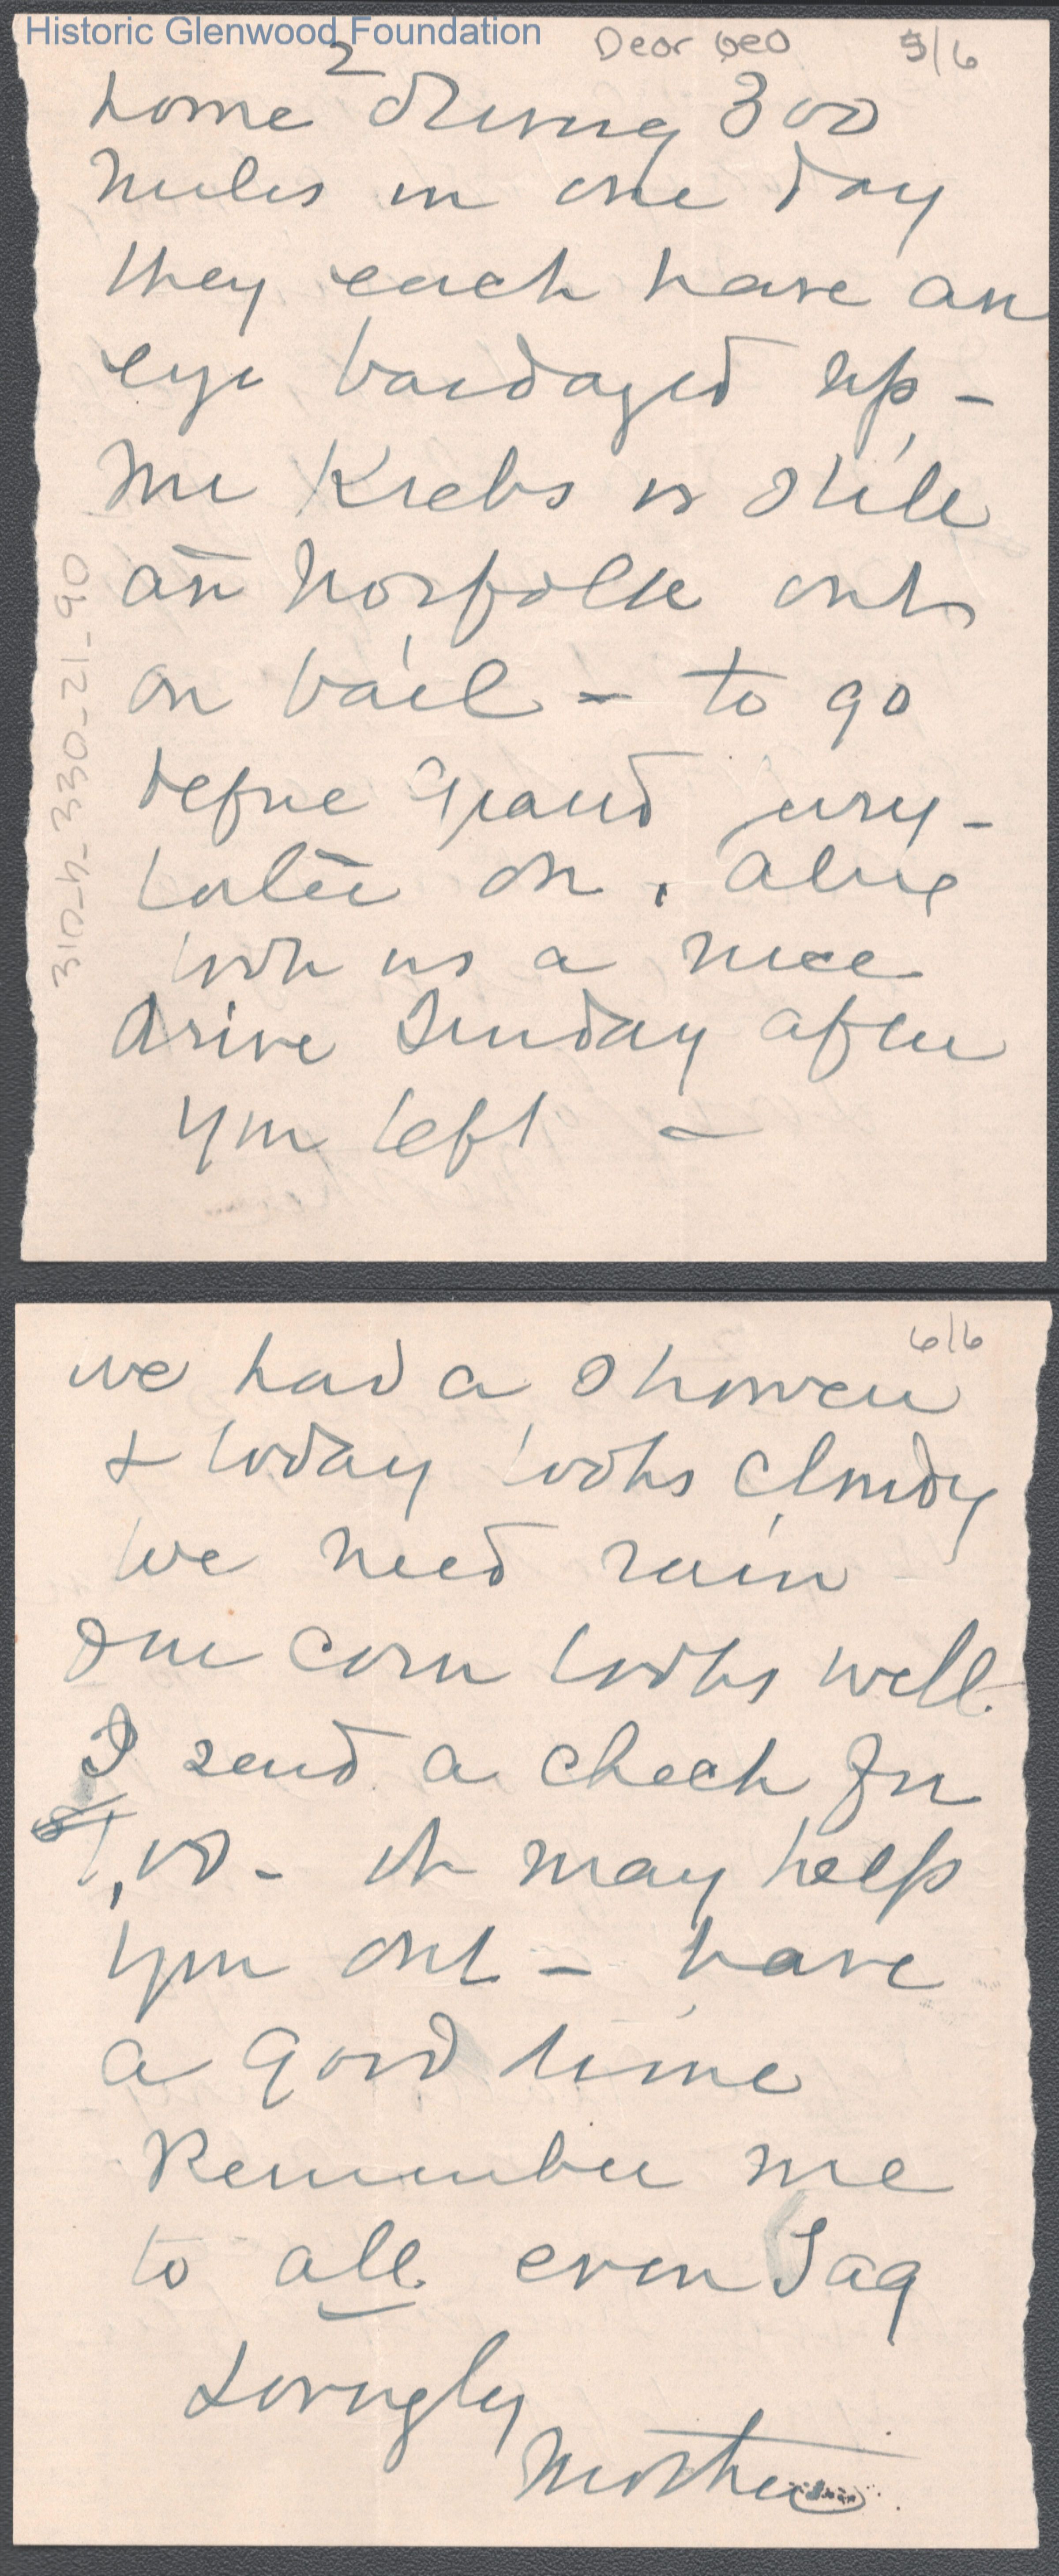 Historic Glenwood Foundation
Dear Geo 5/6
2
home driving 300
miles in one day
they each have an
eye bandaged up -
Mr Krebs is still
at Norfolk out
on bail - to go
before Grand jury -
later on.
took us a nice
drive Sunday after
you left -
310_h_330_21_90
6/6
we had a shower
& today looks cloudy
we need rain
our corn looks well
I send a check for
it may help
you out - have
a good time
Remember me
to all even
Lovingly
Mother